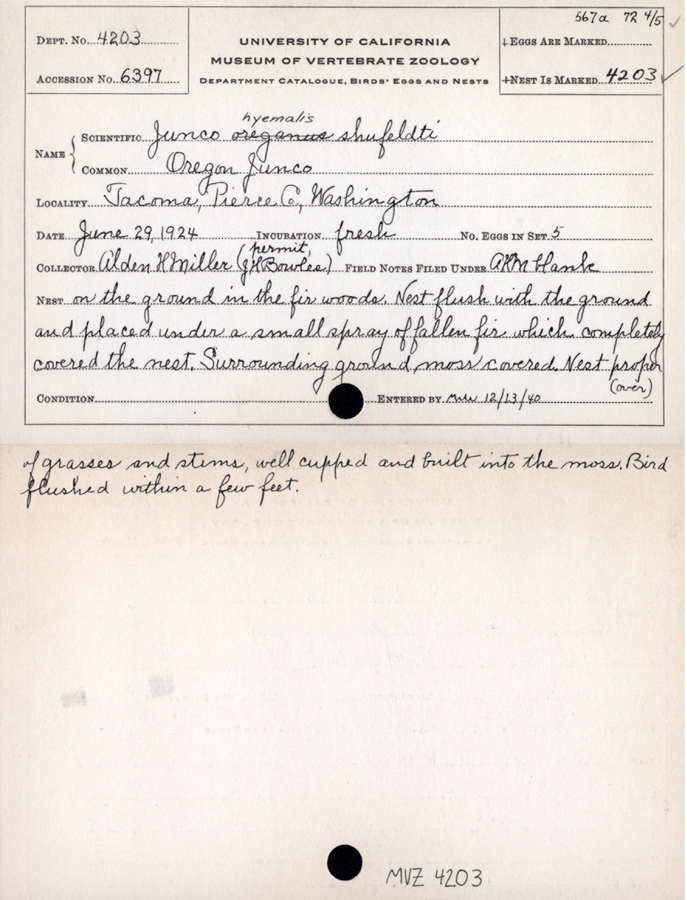 567a 72 4/5 ✓
DEPT. NO. 4203
ACCESSION NO. 6397
UNIVERSITY OF CALIFORNIA
MUSEUM OF VERTEBRATE ZOOLOGY
DEPARTMENT CATALOGUE, BIRDS' EGGS AND NESTS
EGGS ARE MARKED
NEST IS MARKED 4203 ✓
hyemalis
NAME { SCIENTIFIC Junco oreganus shufeldti
COMMON Oregon Junco
LOCALITY Tacoma, Pierce Co., Washington
DATE June 29, 1924 INCUBATION fresh NO. EGGS IN SET 5
permit
COLLECTOR Alden H Miller (J H Bowles) FIELD NOTES FILED UNDER AHM blank
NEST on the ground in the fir woods. Nest flush with the ground
and placed under a small spray of fallen fir which completely
covered the nest. Surrounding ground moss covered. Nest proper
(over)
CONDITION ENTERED BY 12/13/40
of grasses and stems, well cupped and built into the moss. Bird
flushed within a few feet.
MVZ 4203